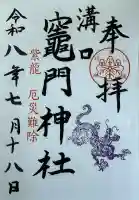 奉拝
溝口
竈門神社
紫龍 厄災難除
令和八年七月十八日